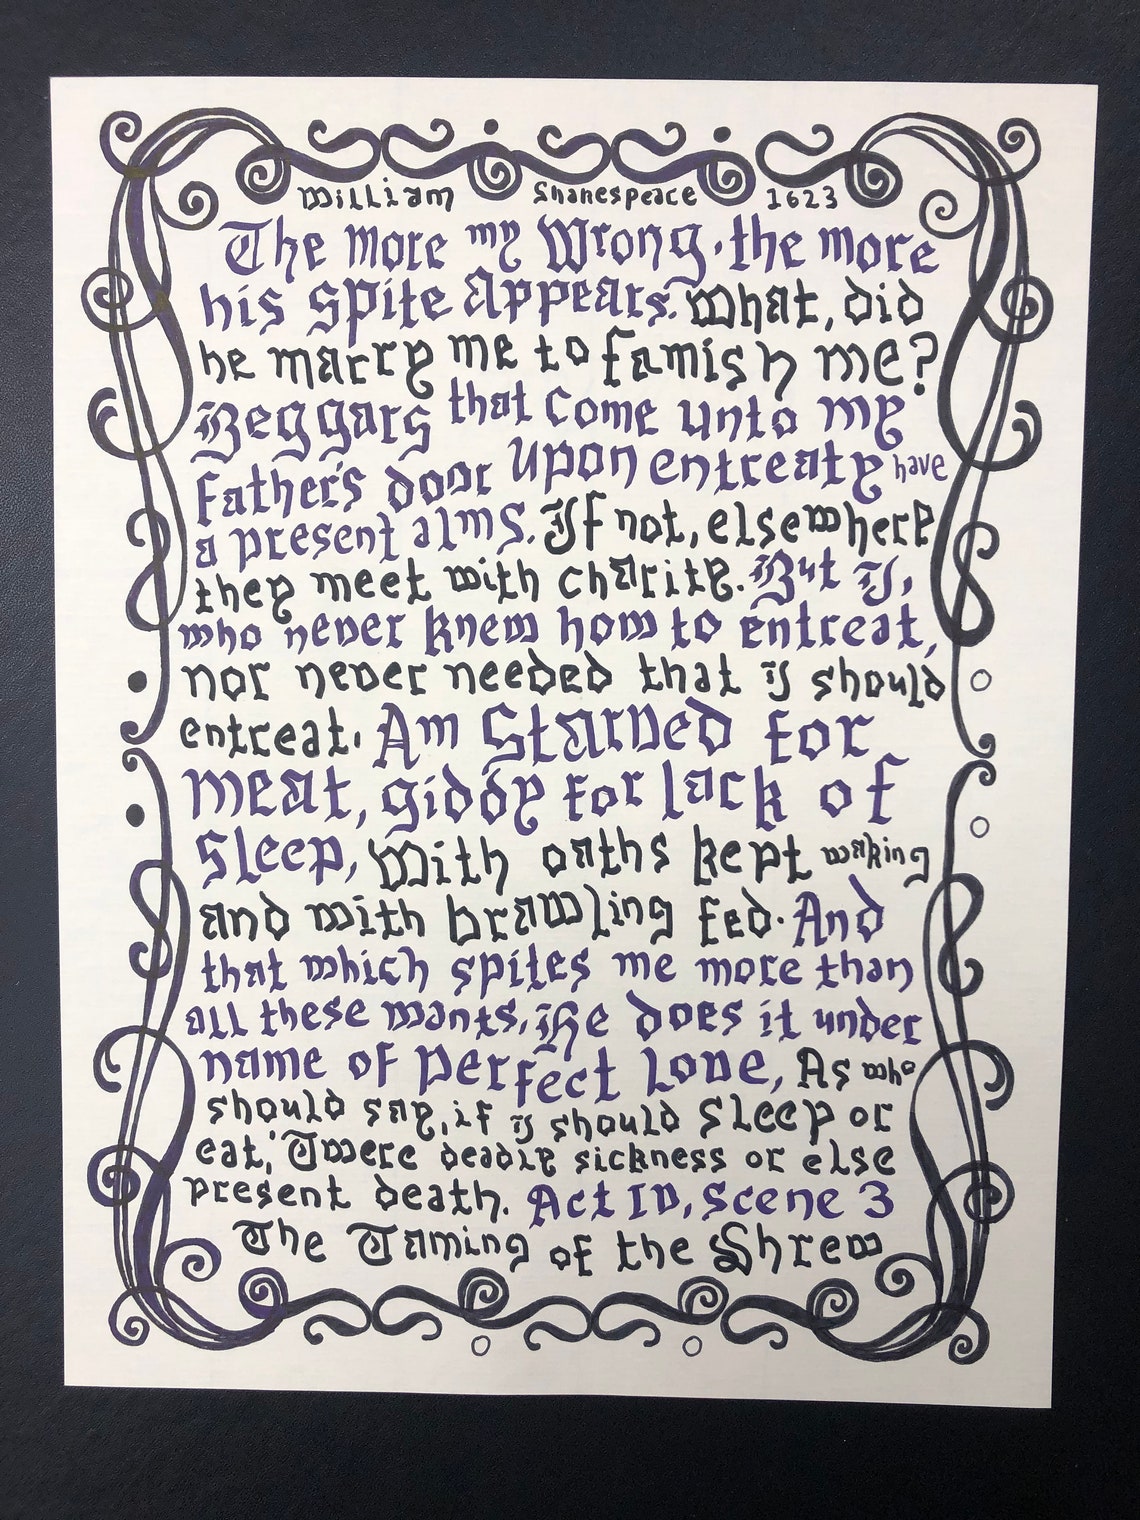 William Shakespeare 1623
The More my Wrong, the more
his spite Appears. What, did
he marry me to famish me?
Beggars that come unto my
father's door upon entreaty have
a present alms. If not, elsewhere
they meet with charity. But I,
who never knew how to entreat,
nor never needed that I should
entreat, Am Starved for
meat, giddy for lack of
sleep, With oaths kept waking
and with brawling fed. And
that which spites me more than
all these wants, He does it under
name of perfect Love, As who
should say, if I should sleep or
eat, 'Twere deadly sickness or else
present death. Act IV, Scene 3
The Taming of the Shrew